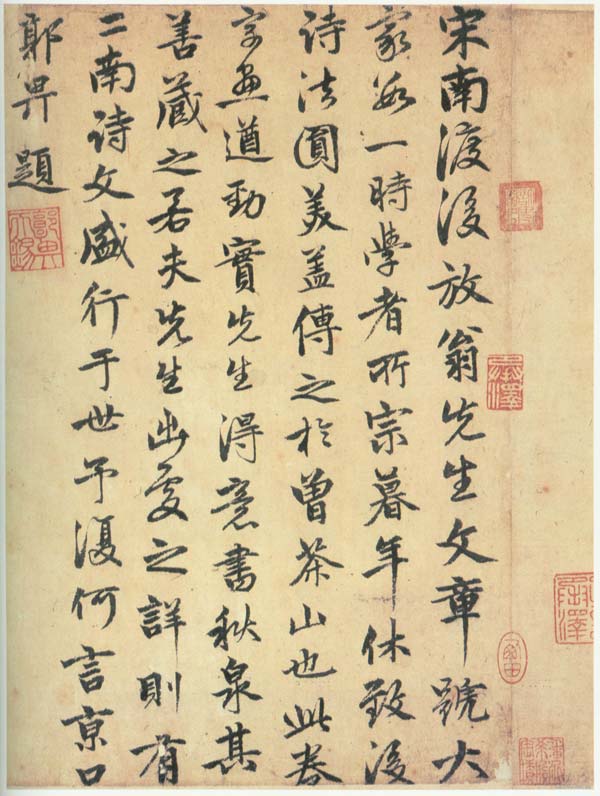 宋南渡後放翁先生文章號大
家為一時學者所宗暮年休致後
詩法圓美盖傳之於曾茶山也此卷
字畫遒勁實先生得意書秋泉其
善藏之若夫先生出處之詳則有
二南詩文盛行于世予復何言京口
郭畀題